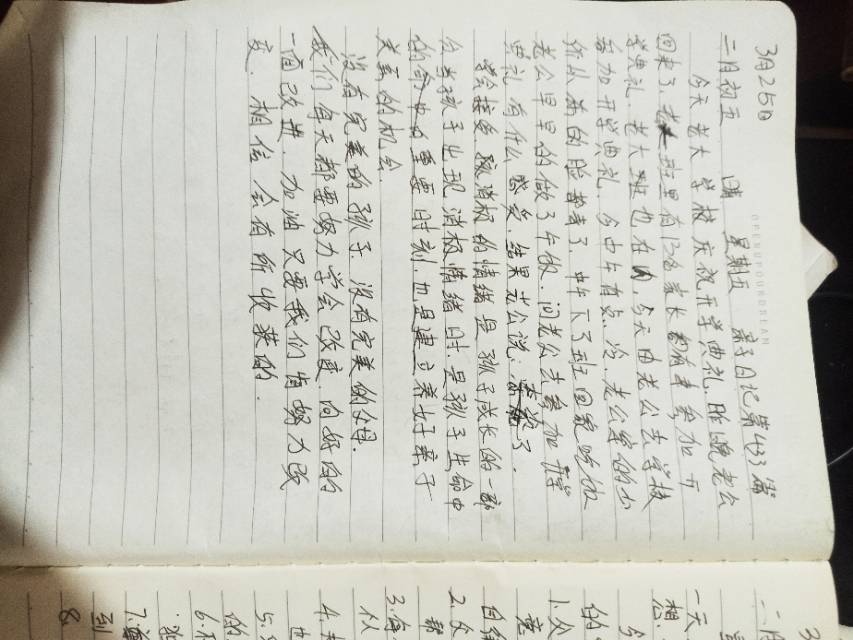 3月25日
二月初五 晴 星期五 亲子日记第433篇
今天老大学校庆祝开学典礼.昨晚老公
回来了.老大班里有12名家长都放弃参加开
学典礼.老大班也在内 今天由老公去学校
参加开学典礼.今中午有点冷.老公穿的少
所以前的脸都青了.中午下了班回家吃饭
老公早早的做了午饭.问老公去参加开学
典礼.有什么感受.结果老公说:亲来了.
学会接受.孩消极的情绪是孩子成长的一部
分当孩子出现消极情绪时.是孩子生命中
的命中的重要时刻.也是建立养好亲子
关系的机会.
没有完美的孩子.没有完美的父母.
我们每天都要努力学会改变.向好的
一面改进.加油.只要我们肯努力改
变.相信会有所收获的.
OPENUPYOURDREAM
二月
一天
相想
1.众
的
意
自
2.众
帮
3.每
似
4.
也
5.
的
6.
7.
8
到